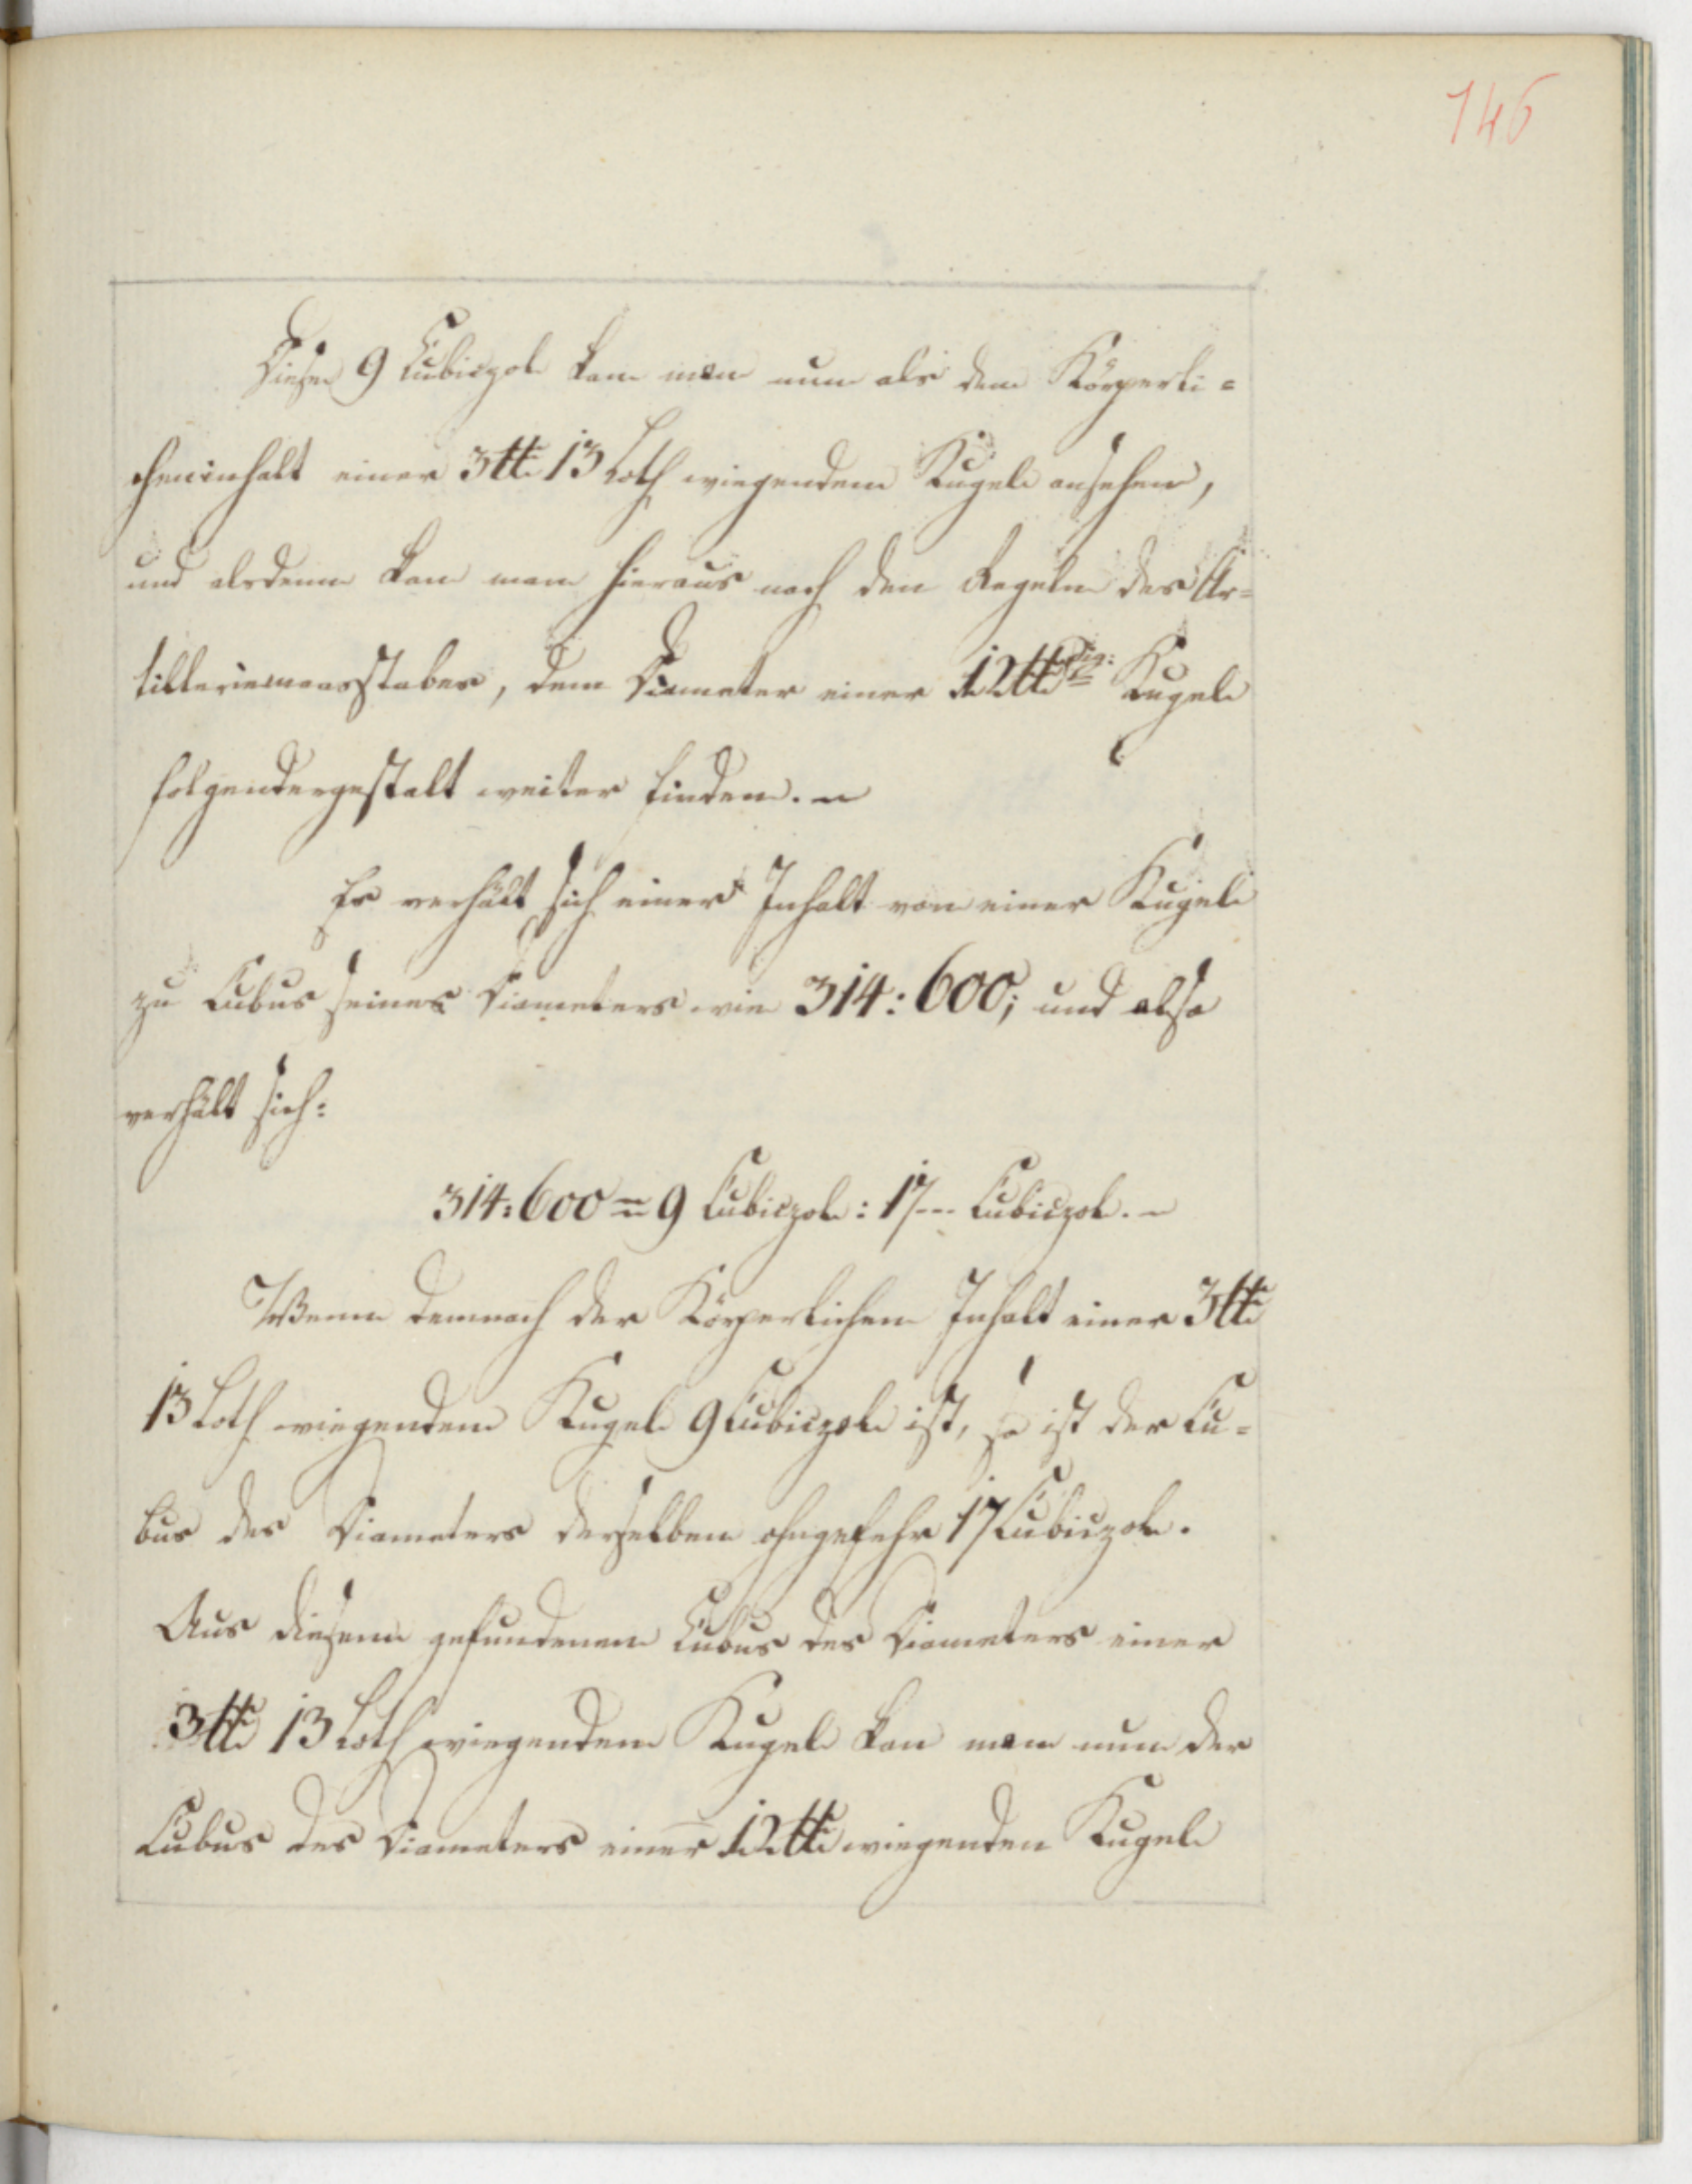 146
Diese 9 Cubiczol kan man nun als den Körperli=
cheninhalt einer 3 ℔ 13 Loth wiegenden Kugel ansehen,
und alsdenn kan man hieraus nach den Regeln des Ar=
tilleriemaasstabes, dem Diameter einer 12 ℔dig: Kugel
folgendergestalt weiter finden. ~
Es verhält sich einer Inhalt von einer Kugel
zu Cubus seines Diameters wie 314: 600; und also
verhält sich:
314: 600 = 9 Cubiczol: 17--- Cubiczol. ~
Wenn demnach der Körperlichen Inhalt einer 3 ℔
13 Loth wiegenden Kugel 9 Cubiczol ist, so ist der Cu=
bus des Diameters derselben ohngefehr 17 Cubiczol.
Aus diesem gefundenen Cubus des Diameters einer
3 ℔ 13 Loth wiegenden Kugel kan man nun der
Cubus des Diameters einer 12 ℔ wiegenden Kugel